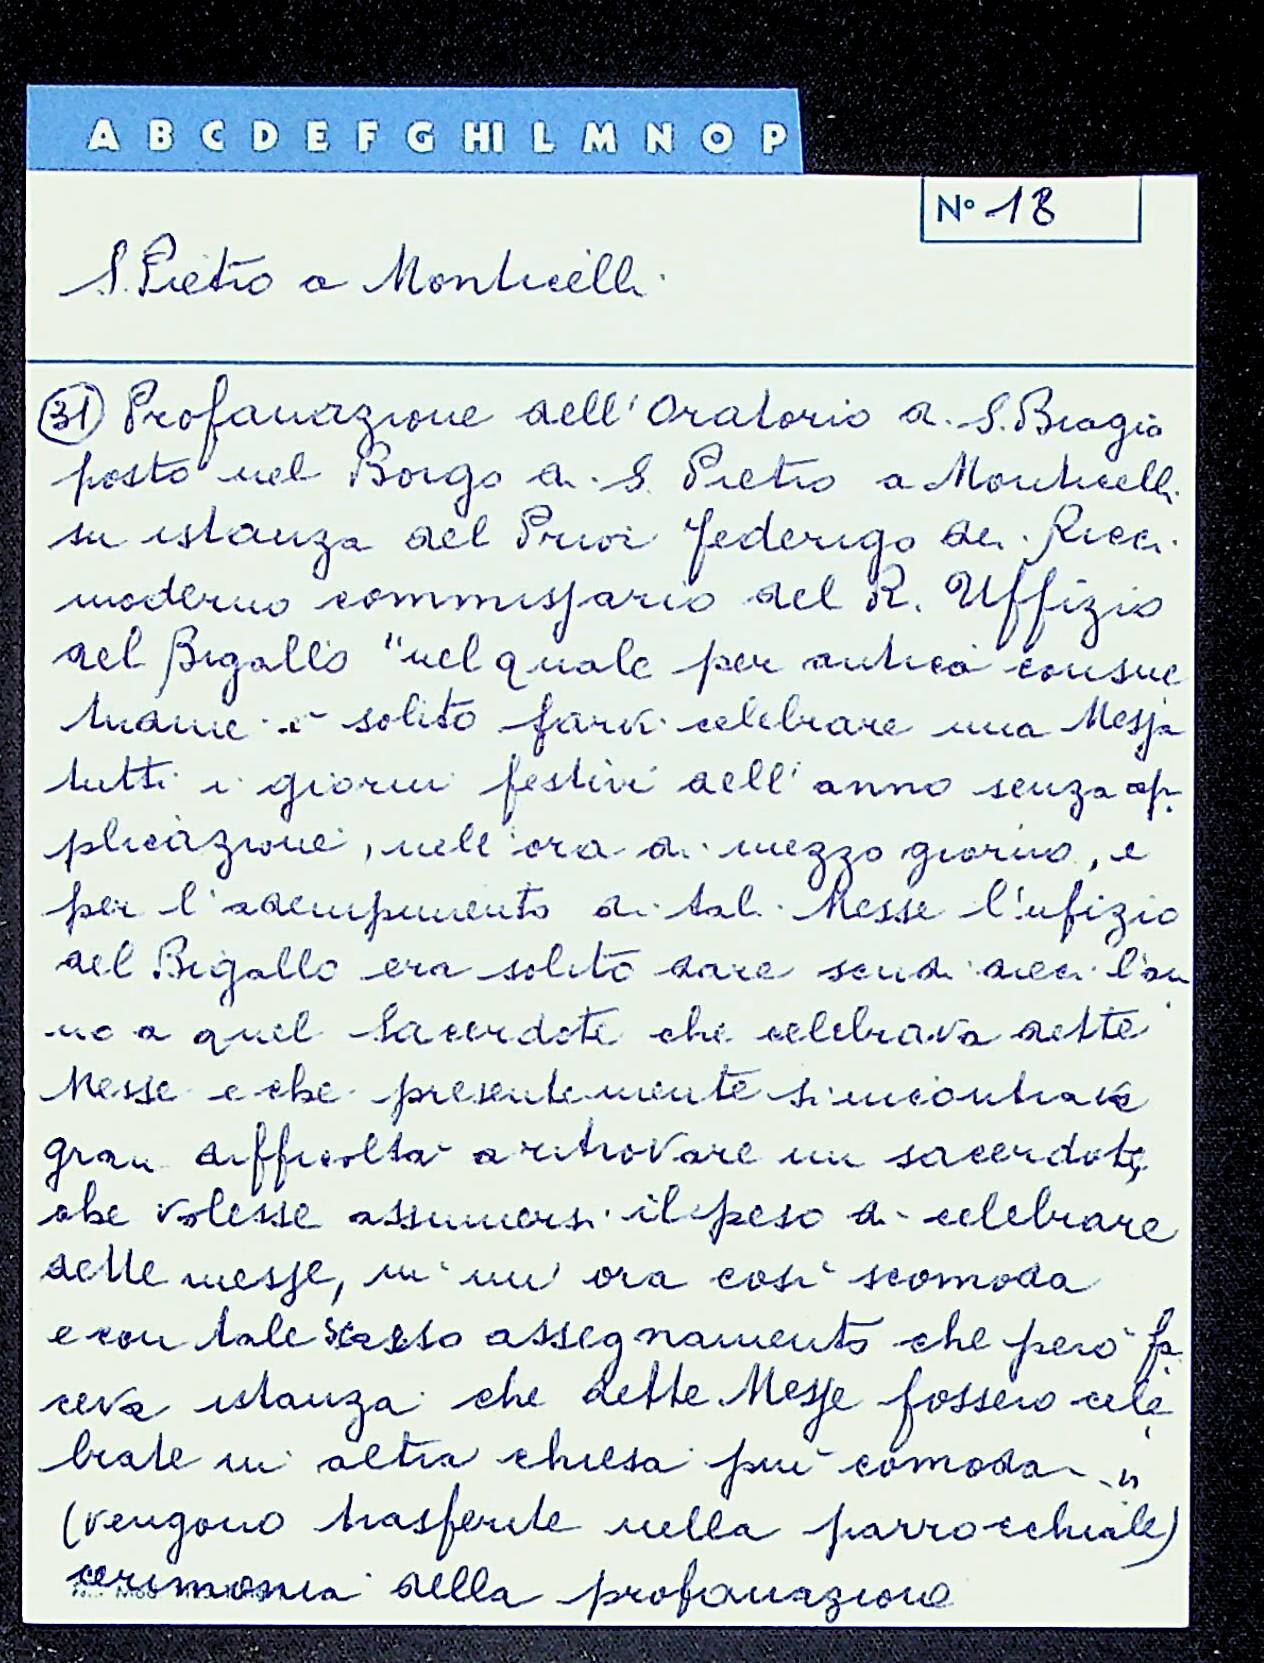 A B C D E F G HI L M N O P
N° 18
S. Pietro a Monticelli
(31) Profanazione dell'Oratorio di S. Biagio
posto nel Borgo di S. Pietro a Monticelli
su istanza del Priór Federigo dei Ricci
moderno commissario del R. Uffizio
del Bigallo "nel quale per antica consue
tudine è solito farvi celebrare una Messa
tutti i giorni festivi dell'anno senza ap-
plicazione, nell'ora di mezzo giorno, e
per l'adempimento di tali Messe l'ufizio
del Bigallo era solito dare scudi dieci l'an
no a quel Sacerdote che celebrava dette
Messe e che presentemente si incontrava
gran difficoltà a ritrovare un sacerdote,
che volesse assumersi il peso di celebrare
dette messe, in un' ora così scomoda
e con tale scarso assegnamento che però fa
ceva istanza che dette Messe fossero cele
brate in altra chiesa più comoda"
(vengono trasferite nella parrocchiale)
cerimonia della profanazione